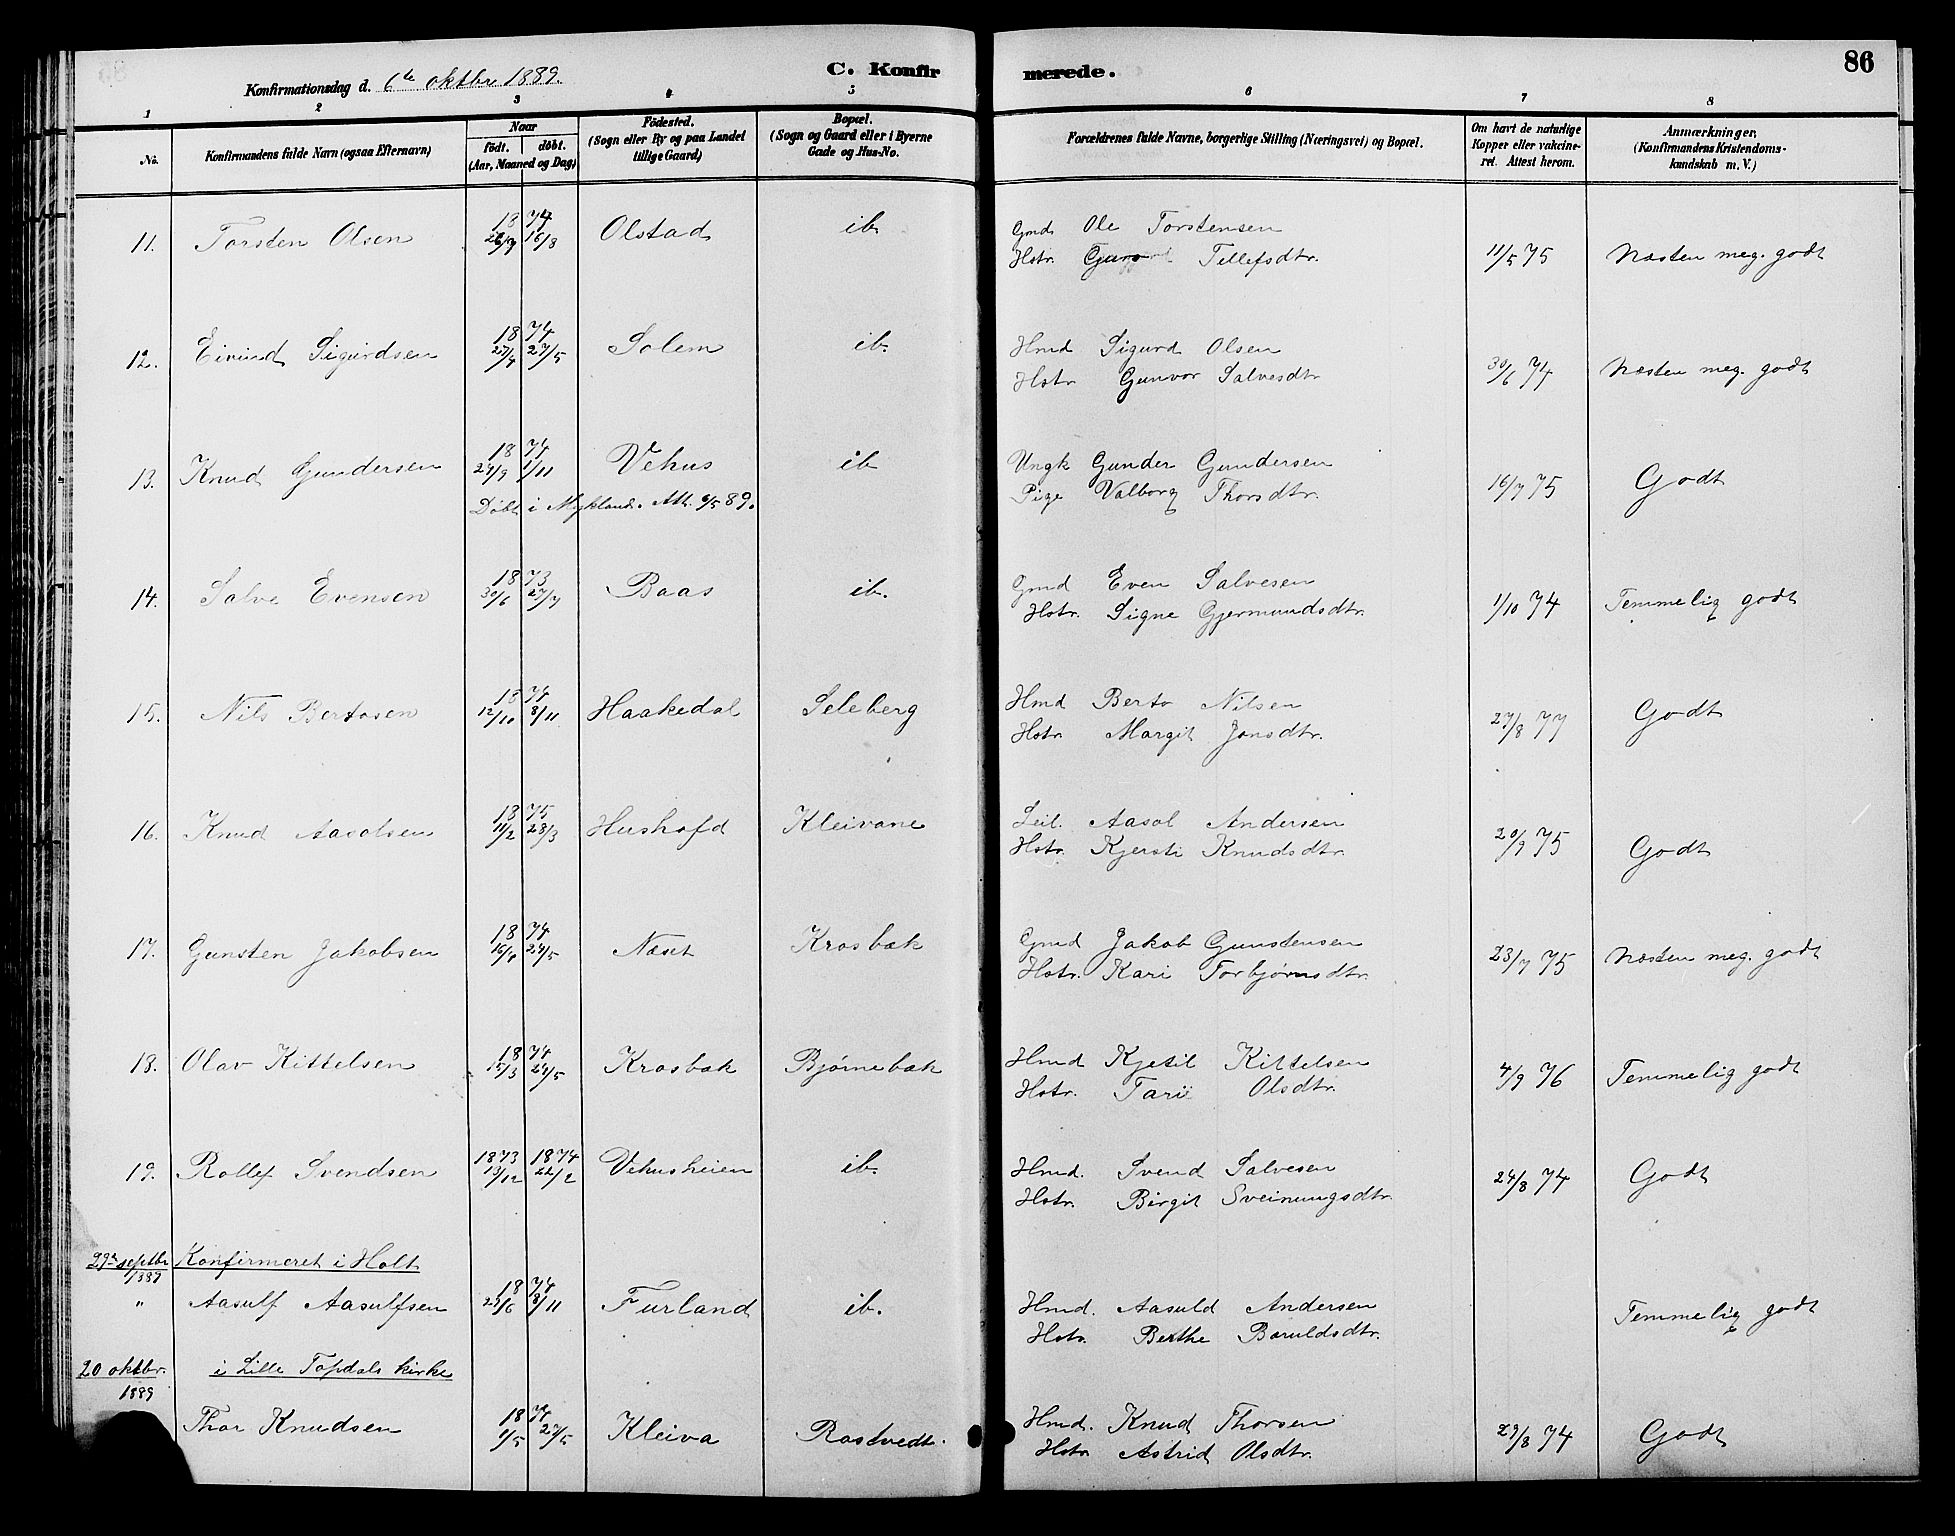 86
C. Konfirmerede.
Konfirmationsdag d. 6te oktbr 1889.
1 2 3 4 5 6 7 8
No.
Konfirmandens fulde Navn (ogsaa Efternavn)
Naar
födt. döbt.
(Aar, Maaned og Dag)
Födested.
(Sogn eller By og paa Landet
tillige Gaard)
Bopæl.
(Sogn og Gaard eller i Byerne
Gade og Hus-No.
Forældrenes fulde Navne, borgerlige Stilling (Næringsvei) og Bopæl.
Om havt de naturlige
Kopper eller vakcine-
ret. Attest herom.
Anmærkninger.
(Konfirmandens Kristendoms-
kundskab m. V.)
11. Torsten Olsen 18 74 16/8 Olstad ib.
Gmd Ole Torstensen
Hstr. Tellefsdtr. 11/5 75 Næsten meg. godt
12. Eivind Sigurdsen 18 74 27/4 27/5 Solem ib.
Hmd Sigurd Olsen
Hstr Gunvor Salvesdtr 30/6 74 Næsten meg. godt
13. Knud Gundersen 18 74 29/9 1/11 Vehus ib
Döbt i Mykland. Att. 6/5 89.
Ungk Gunder Gundersen
Pige Valborg Thorsdtr. 16/7 75 Godt
14. Salve Evensen 18 73 30/6 27/7 Baas ib.
Gmd Even Salvesen
Hstr. Signe Gjermundsdtr. 1/10 74 Temmelig godt
15. Nils Bertosen 18 74 12/10 8/11 Haakedal Seleberg
Hmd Berto Nilsen
Hstr Margit Jonsdtr. 27/8 77 Godt
16. Knud Aasolsen 18 75 11/2 28/3 Hushofd Kleivane
Leil. Aasol Andersen
Hstr. Kjersti Knudsdtr. 20/9 75 Godt
17. Gunsten Jakobsen 18 74 16/4 24/5 Næset Krosbæk
Gmd Jakob Gunstensen
Hstr. Kari Torbjørnsdtr. 23/7 75 Næsten meg. godt
18. Olav Kittelsen 18 74 15/3 24/5 Krosbæk Bjørnebæk
Hmd Kjetil Kittelsen
Hstr. Tari Olsdtr. 4/9 76 Temmelig godt
19. Rollef Svendsen 1873 1874 13/12 22/2 Vehusheien ib.
Hmd. Svend Salvesen
Hstr. Birgit Sveinungsdtr. 24/8 74 Godt
29de septbr 1889 Konfirmeret i Holt
" Aasulf Aasulfsen 18 74 8/11 Furland ib.
Hmd. Aasuld Andersen
Hstr. Berthe Baruldsdtr. Temmelig godt
20 oktbr. 1889 i Lille Topdals kirke
Thor Knudsen 18 74 1/5 27/5 Kleiva Rostvedt.
Hmd. Knud Thorsen
Hstr Astrid Olsdtr. 29/8 74 Godt